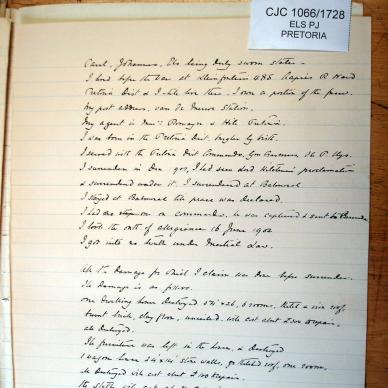 CJC 1066/1728
ELS PJ
PRETORIA
Johannes, Els being duly sworn states -
I lived before the War at Kleinfontein 485
Pretoria Dist & I still live there. I own a portion of the farm.
My post address, van der Merwe Station.
My agent is
I was born in the Pretoria Dist
I served with the Pretoria Dist Commando, Gen
I surrendered in Dec 1900, I had seen Lord Kitchener's proclamation
& surrendered under it. I surrendered at Balmoral
I stayed at Balmoral till peace was declared.
I had one on commando, he was captured & sent to Bermuda
I took the oath of allegiance 16 June 1902
I got into no trouble under Martial Law.
All the damage for which I claim was done before surrender.
The damage is as follows.
One dwelling house destroyed 54 x 26, 6 rooms, roof,
burnt brick, clay floor, unceiled. Will cost about £200 to repair,
all destroyed.
The furniture was left in the house, & destroyed
1 wagon house stone walls, roof, one room.
All destroyed will cost about £100 to repair.